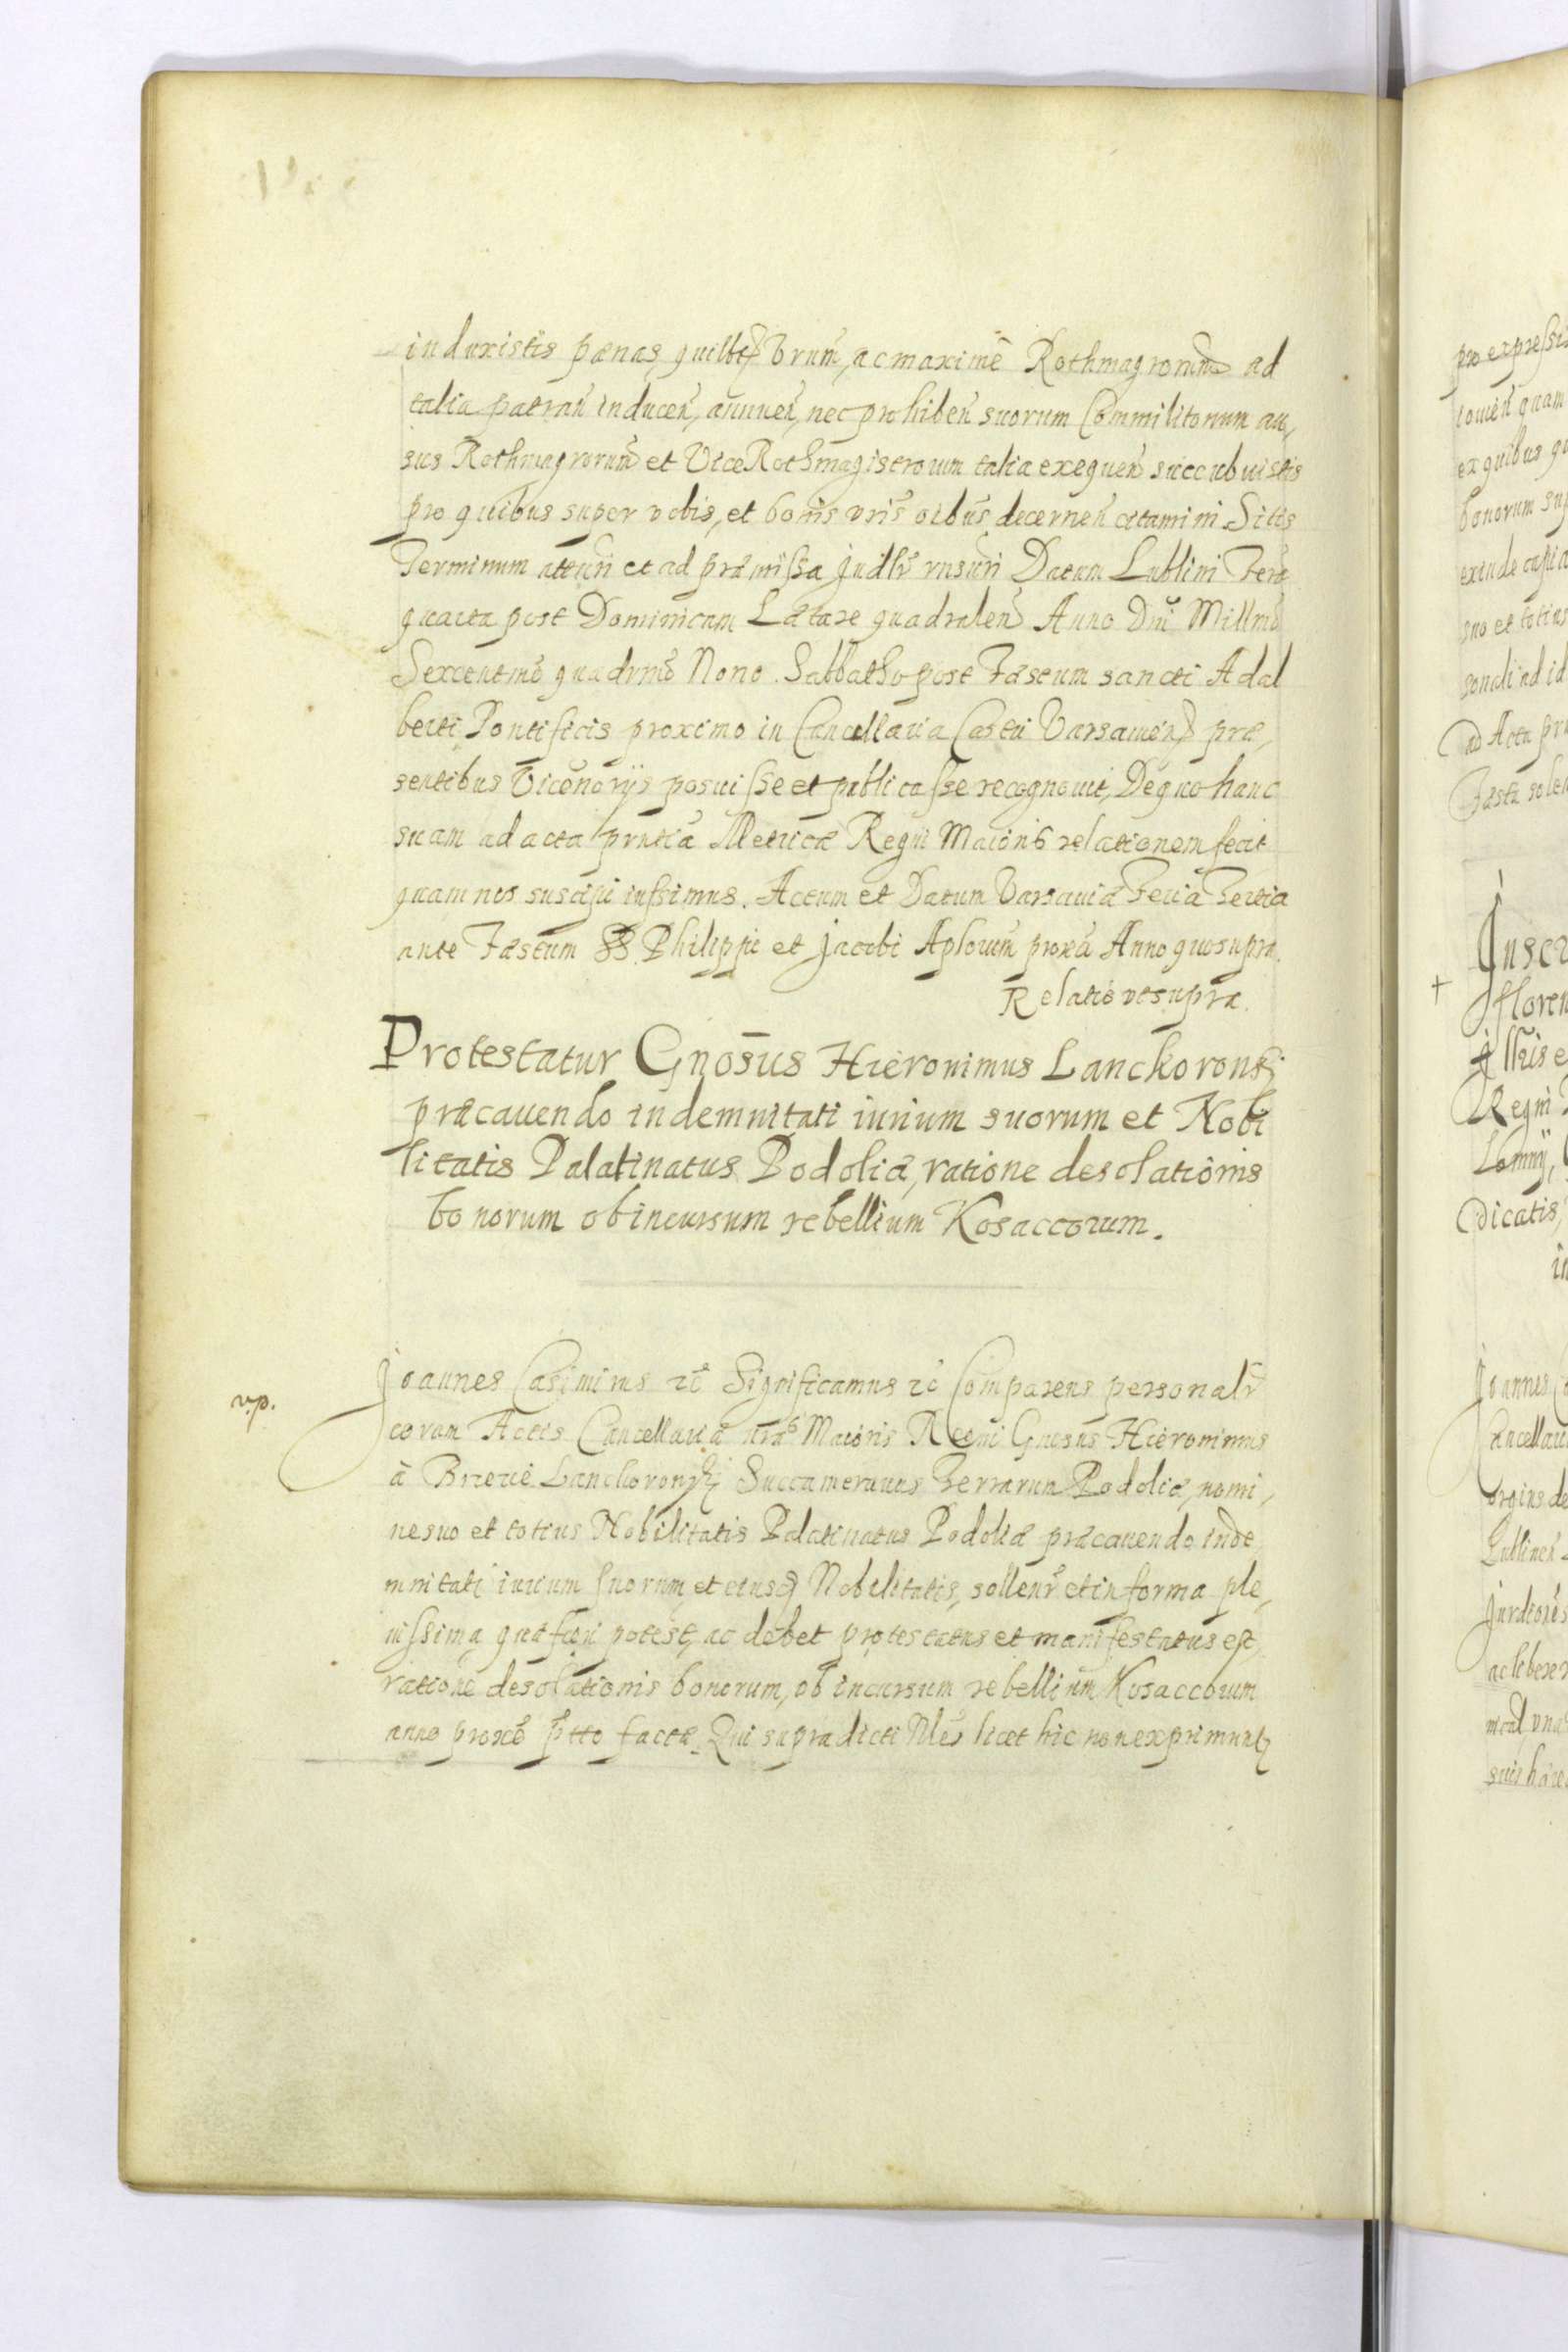 induxistis pænas, quilibet Vrum̃, ac maximè Rothmagrorum ad
talia patran̄ inducen̄, annuen̄, nec prohiben̄ suorum Commilitonum au,
sus Rothmagrorum et ViceRothmagistrorum talia exequen̄ succubuistis
pro quibus super vobis, et bonis vris̄ oibus̄ decernen̄ citamini Sitis
Terminum atten̄ et ad præmissa Judlr̄ rnsuri Datum Lublini Feria
quarta post Dominicam Lætare quadralen̄ Anno Dni̅ Millmo
Sexcentmo̅ quadrmo̅ Nono. Sabbatho post Fæstum sancti Adal
berti Pontificis proximo in Cancellaria Castri Varsavien̄ præ,
sentibus Vicenotarijs posuisse et publicasse recognouit, De quo hanc
suam ad acta prntia̅ Metricæ Regni Maioris relationem fecit
quam nos suscipi iussimus. Actum et Datum Varsauiæ Feria Tertia
ante Fæstum SS. Philippi et Jacobi Aplorum̅ proxa̅ Anno quo supra.
Relatio vt supra.
Protestatur Gnosus̅ Hieronimus Lanckoronski
præcauendo indemnitati iurium suorum et Nobi
litatis Palatinatus Podoliæ, ratione desolationis
bonorum ob incursum rebellium Kosaccorum.
v.p.
Joannes Casimirus zc̄ Significamus zc̄ Comparens personalr̄
coram Actis Cancellariæ nræ Maioris Regni Gnosus̅ Hieronimus
à Brzezie Lanckoronski Succamerarius Terrarum Podoliæ, nomi,
ne suo et totius Nobilitatis Palatinatus Podoliæ præcauendo inde
mnitati iurium suorum, et eiusq Nobilitatis, sollenr̄ et in forma ple,
nissima, quæ fieri potest, ac debet protestatus et manifestatus est,
ratione desolationis bonorum, ob incursum rebellium Kosaccorum
anno proxe̅ ptto̅ factæ. Qui supradicti Nles̅ licet hic non exprimunt[ur]
pro expressi
quam
ex quibus
bonorum
exinde
suo et totius
ad id
ad Acta
Fæsta
+
Inscr
floren
Regni
Lomny,
dicatis,
Joannes
Cancellari
de
Lublinen̄
ac libere